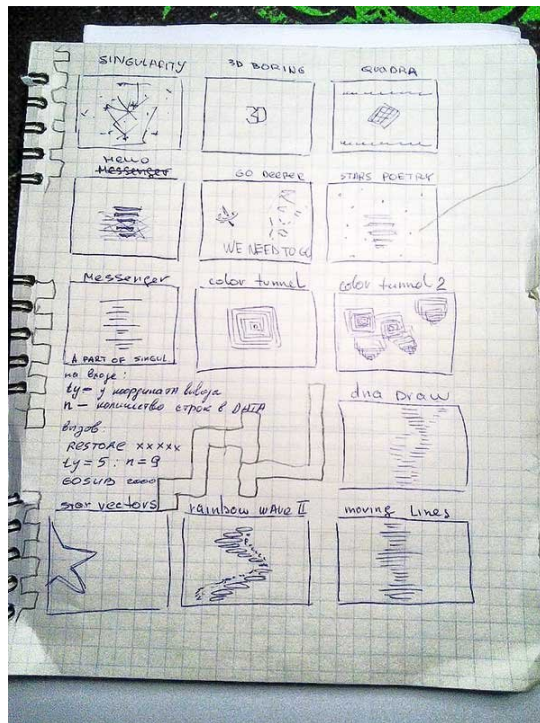 SINGULARITY
3D BORING
QUADRA
3D
HELLO
Messenger
GO DEEPER
STARS POETRY
WE NEED TO GO
Messenger
color tunnel
color tunnel 2
A PART OF SINGUL
на входе:
ty – y координата вывода
n – количество строк в DATA
вызов:
RESTORE xxxxx
ty=5 : n=9
GOSUB
dna Draw
star vectors
rainbow wave II
moving Lines